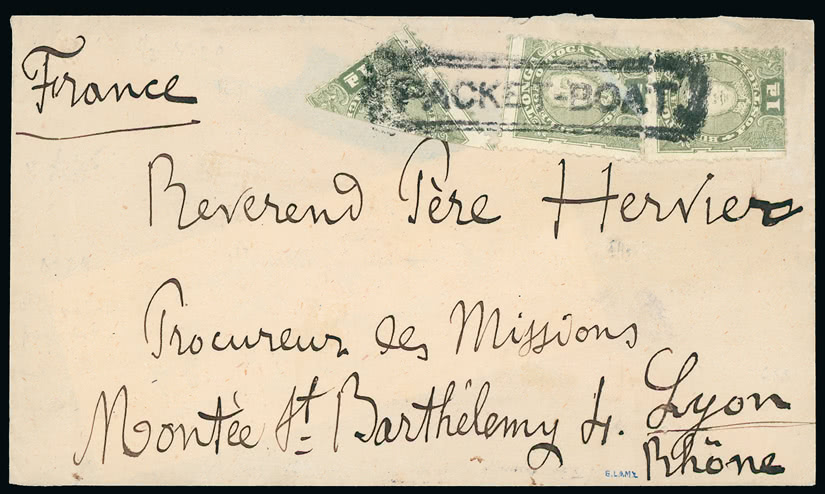 France
PACKET-BOAT
TONGA TOGA
1D
Reverend Père Hervier
Procureur des Missions
Montée St. Barthélemy 4. Lyon
Rhône
E. LAMY